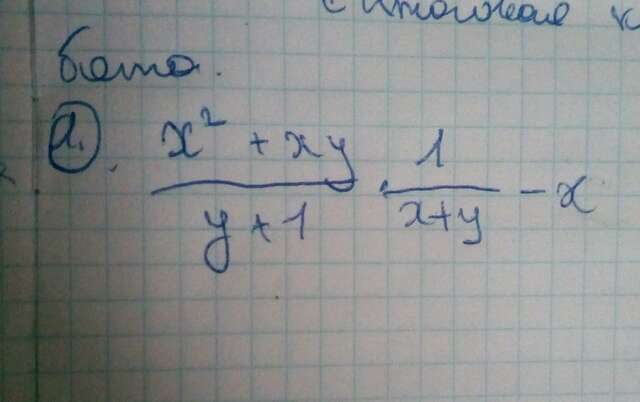 бота.
1. (x² + xy)/(y + 1) · 1/(x+y) - x